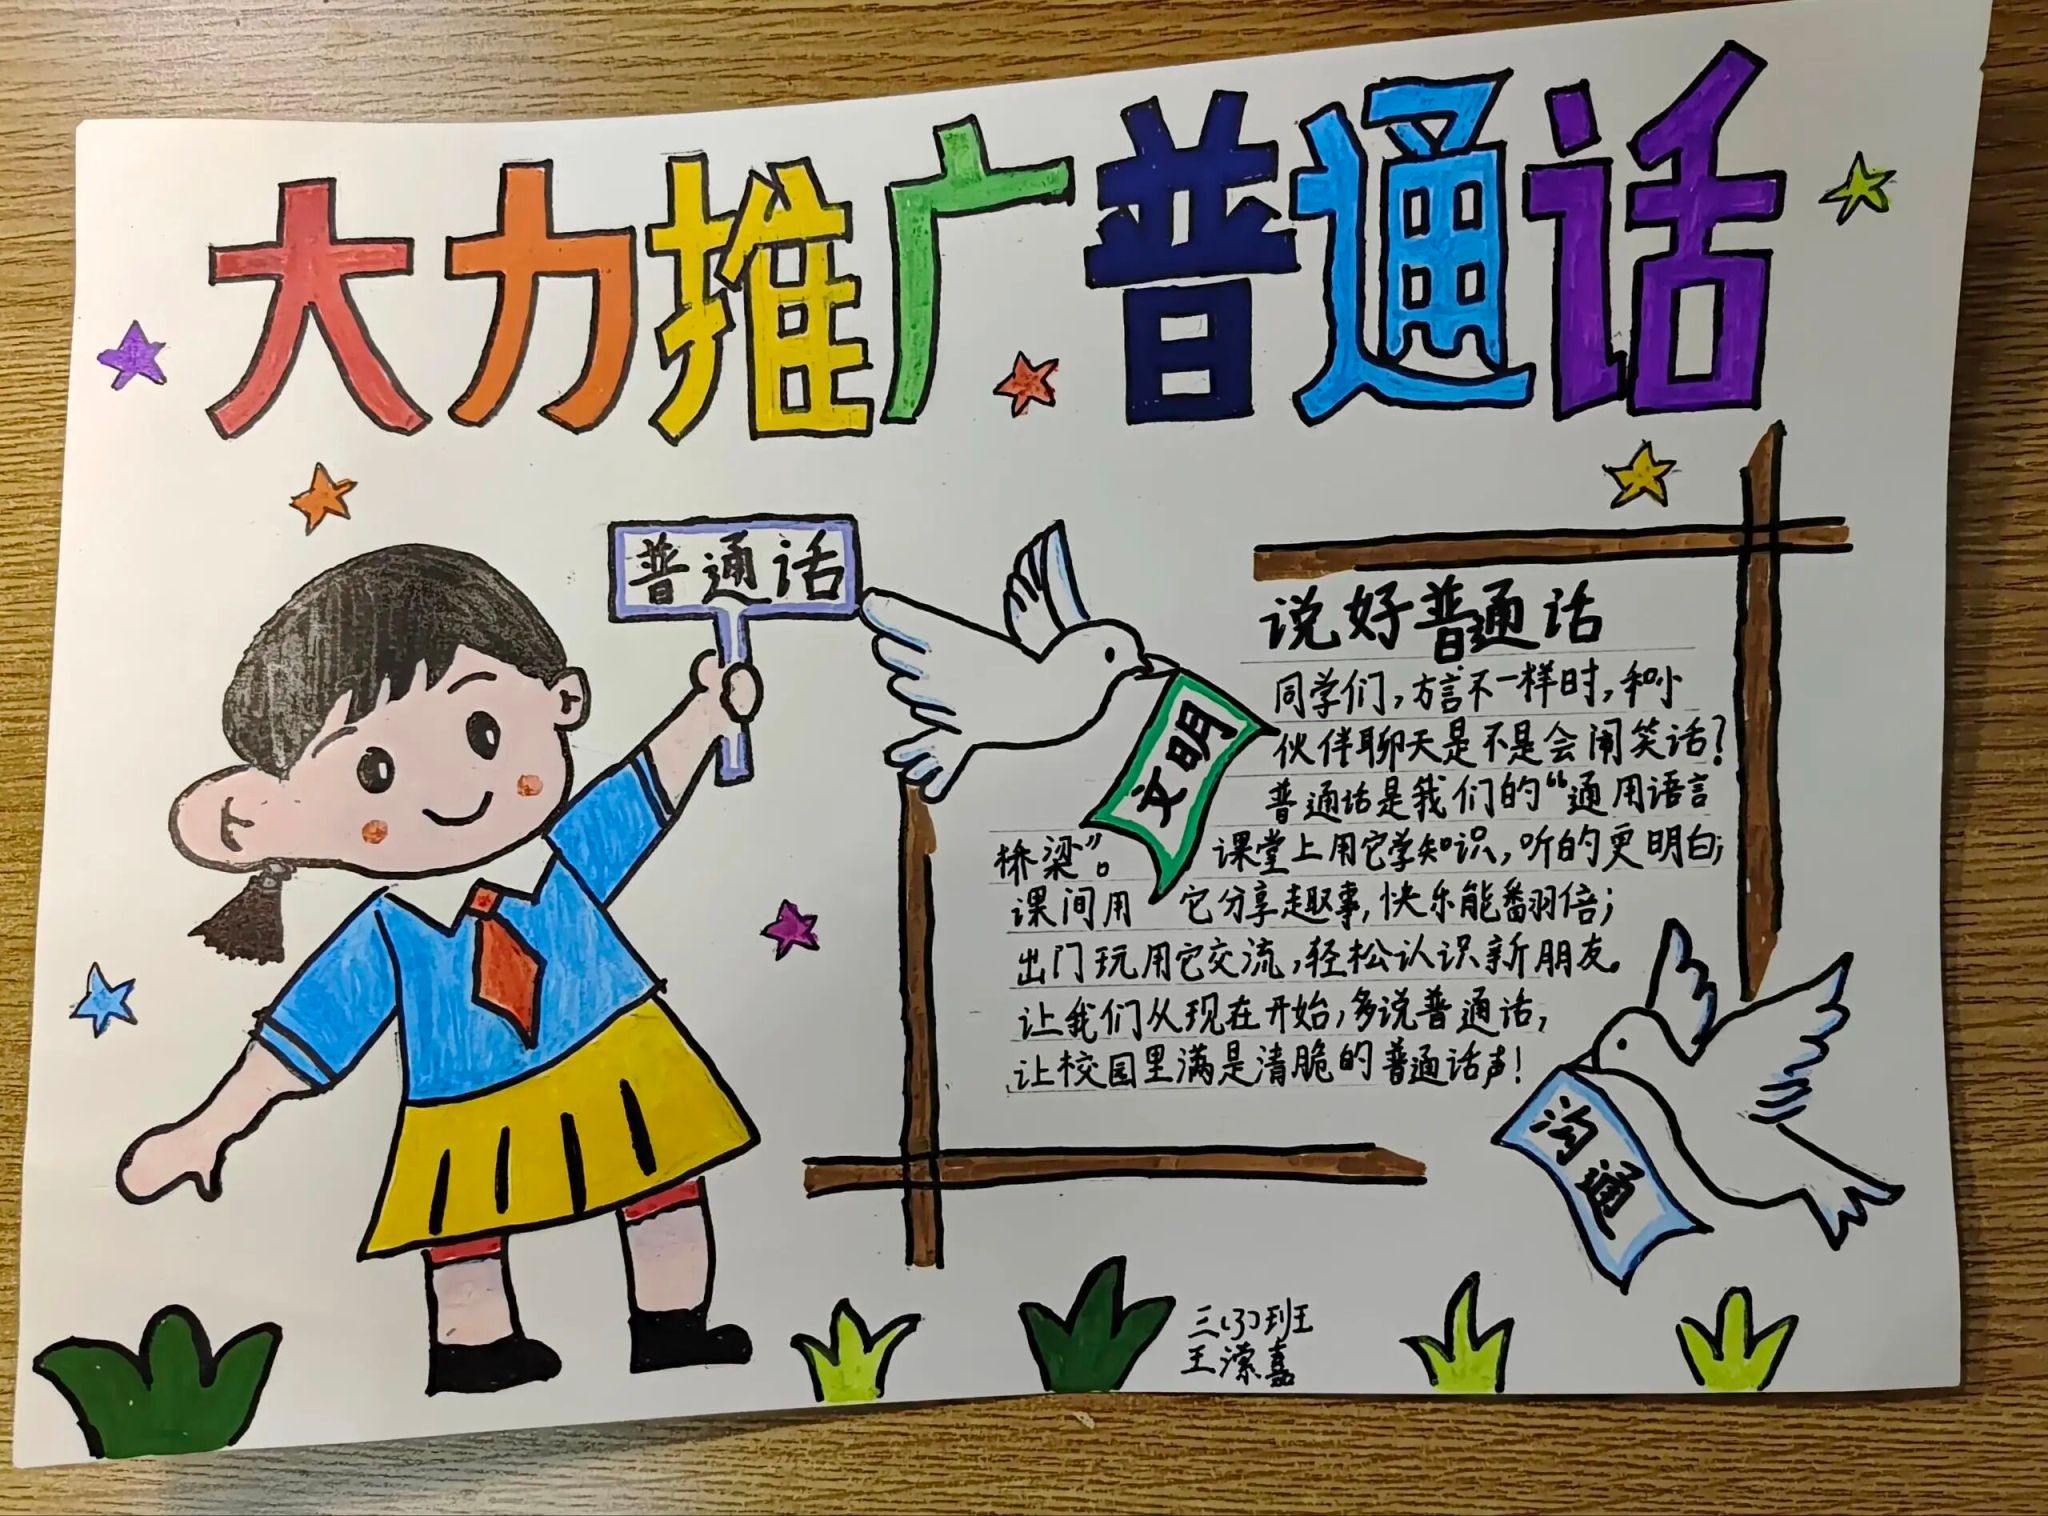 大力推广普通话
普通话
文明
说好普通话
同学们，方言不一样时，和小
伙伴聊天是不是会闹笑话？
普通话是我们的“通用语言
桥梁”。课堂上用它学知识，听的更明白；
课间用它分享趣事，快乐能翻倍；
出门玩用它交流，轻松认识新朋友。
让我们从现在开始，多说普通话，
让校园里满是清脆的普通话声！
沟通
三（3）班
王潆嘉